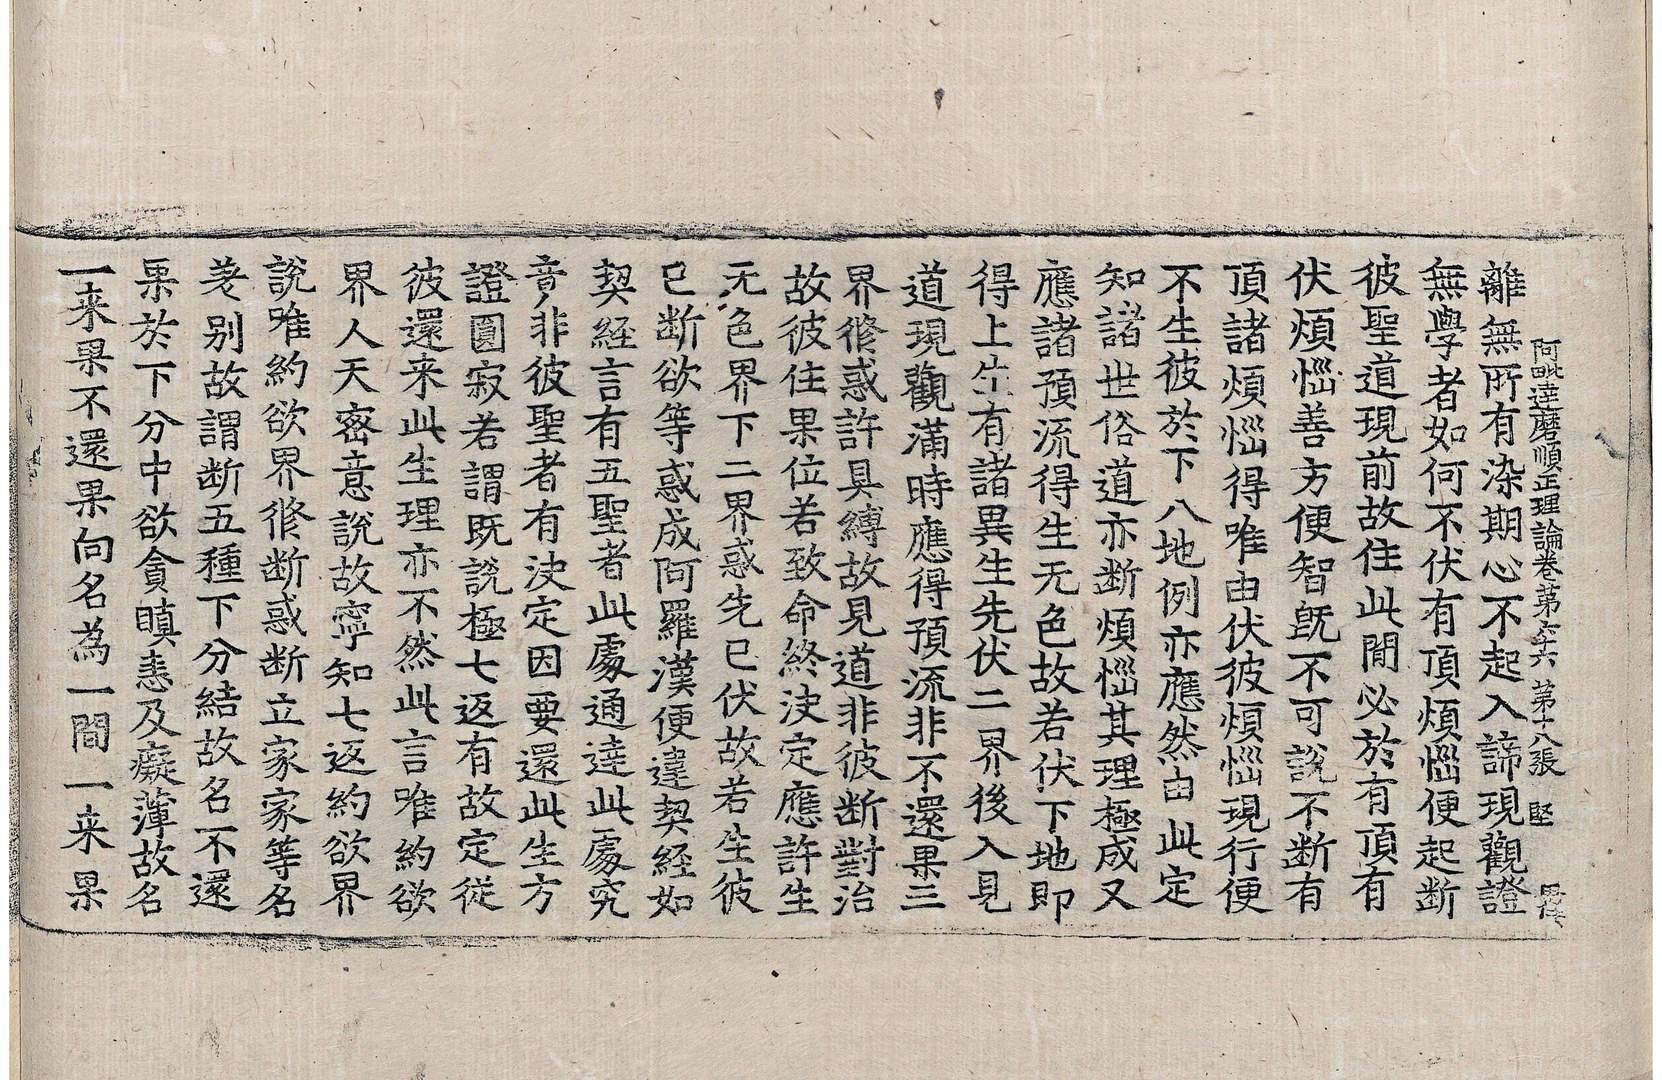 阿毗達磨順正理論卷第六十六 第十八張 堅
離無所有染期心不起入諦現觀證
無學者如何不伏有頂煩惱便起断
彼聖道現前故住此間必於有頂有
伏煩惱善方便智旣不可說不断有
頂諸煩惱得唯由伏彼煩惱現行便
不生彼於下八地例亦應然由此定
知諸世俗道亦断煩惱其理極成又
應諸預流得生无色故若伏下地即
得上生有諸異生先伏二界後入見
道現觀滿時應得預流非不還果三
界修惑許具縛故見道非彼断對治
故彼住果位若致命終決定應許生
无色界下二界惑先已伏故若生彼
已断欲等惑成阿羅漢便違契経如
契経言有五聖者此處通達此處究
竟非彼聖者有決定因要還此生方
證圓寂若謂既説極七返有故定從
彼還来此生理亦不然此言唯約欲
界人天密意説故寧知七返約欲界
説唯約欲界修断惑断立家家等名
差別故謂断五種下分結故名不還
果於下分中欲貪瞋恚及癡薄故名
一来果不還果向名為一間一来果